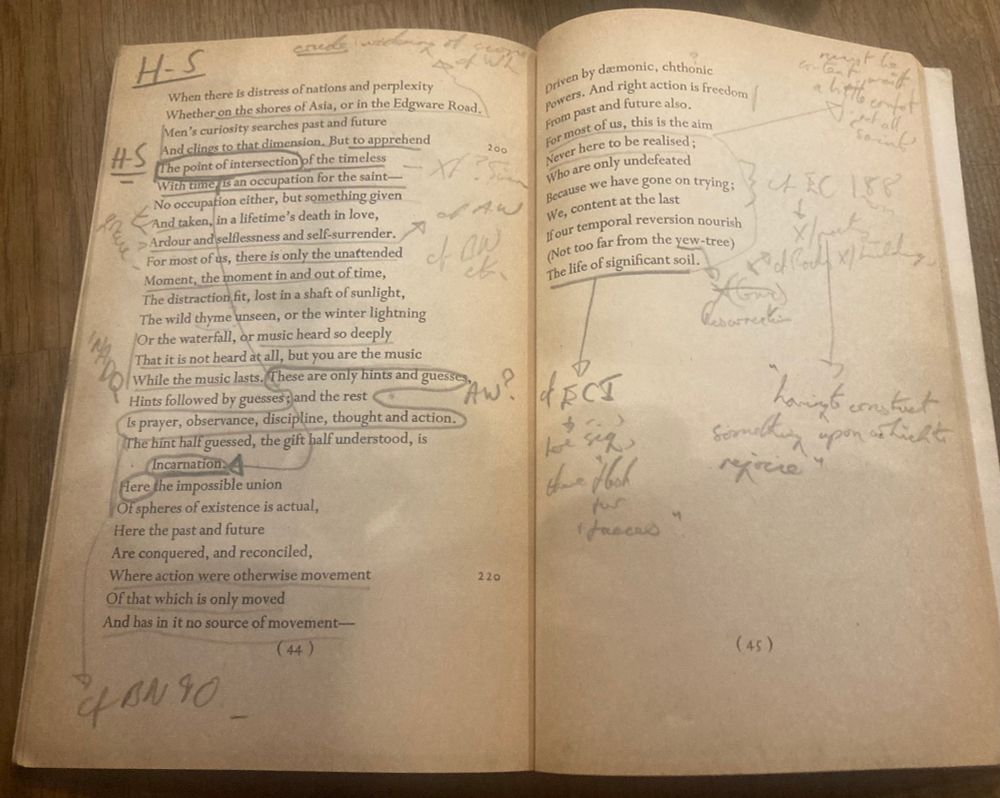 H-S
crude widening of
When there is distress of nations and perplexity
Whether on the shores of Asia, or in the Edgware Road.
Men's curiosity searches past and future
And clings to that dimension. But to apprehend
200
H-S
The point of intersection of the timeless
With time, is an occupation for the saint—
No occupation either, but something given
And taken, in a lifetime's death in love,
cf AW
Ardour and selflessness and self-surrender.
For most of us, there is only the unattended
cf BW
etc.
Moment, the moment in and out of time,
The distraction fit, lost in a shaft of sunlight,
The wild thyme unseen, or the winter lightning
Or the waterfall, or music heard so deeply
That it is not heard at all, but you are the music
While the music lasts. These are only hints and guesses,
AW?
Hints followed by guesses; and the rest
Is prayer, observance, discipline, thought and action.
The hint half guessed, the gift half understood, is
Incarnation.
Here the impossible union
Of spheres of existence is actual,
Here the past and future
Are conquered, and reconciled,
Where action were otherwise movement
220
Of that which is only moved
And has in it no source of movement—
(44)
cf BN 90
Driven by dæmonic, chthonic
?
Powers. And right action is freedom
From past and future also.
For most of us, this is the aim
Never here to be realised;
Who are only undefeated
Because we have gone on trying;
We, content at the last
If our temporal reversion nourish
(Not too far from the yew-tree)
The life of significant soil.
must be
content
a little
not all
saints
cf EC 188
resurrection
cf ECI
"having to construct
something upon which to
rejoice"
flesh
fur
faeces"
(45)